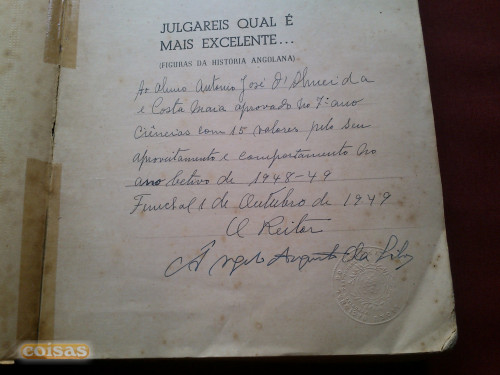 JULGAREIS QUAL É
MAIS EXCELENTE...
(FIGURAS DA HISTORIA ANGOLANA)
Ao aluno Antonio José d'Almeida
e Costa Maia aprovado no 7º ano
Ciências com 15 valores pelo seu
aproveitamento e comportamento no
ano lectivo de 1948-49
Funchal 1 de Outubro de 1949
O Reitor
Angelo Augusto da Silva
coisas